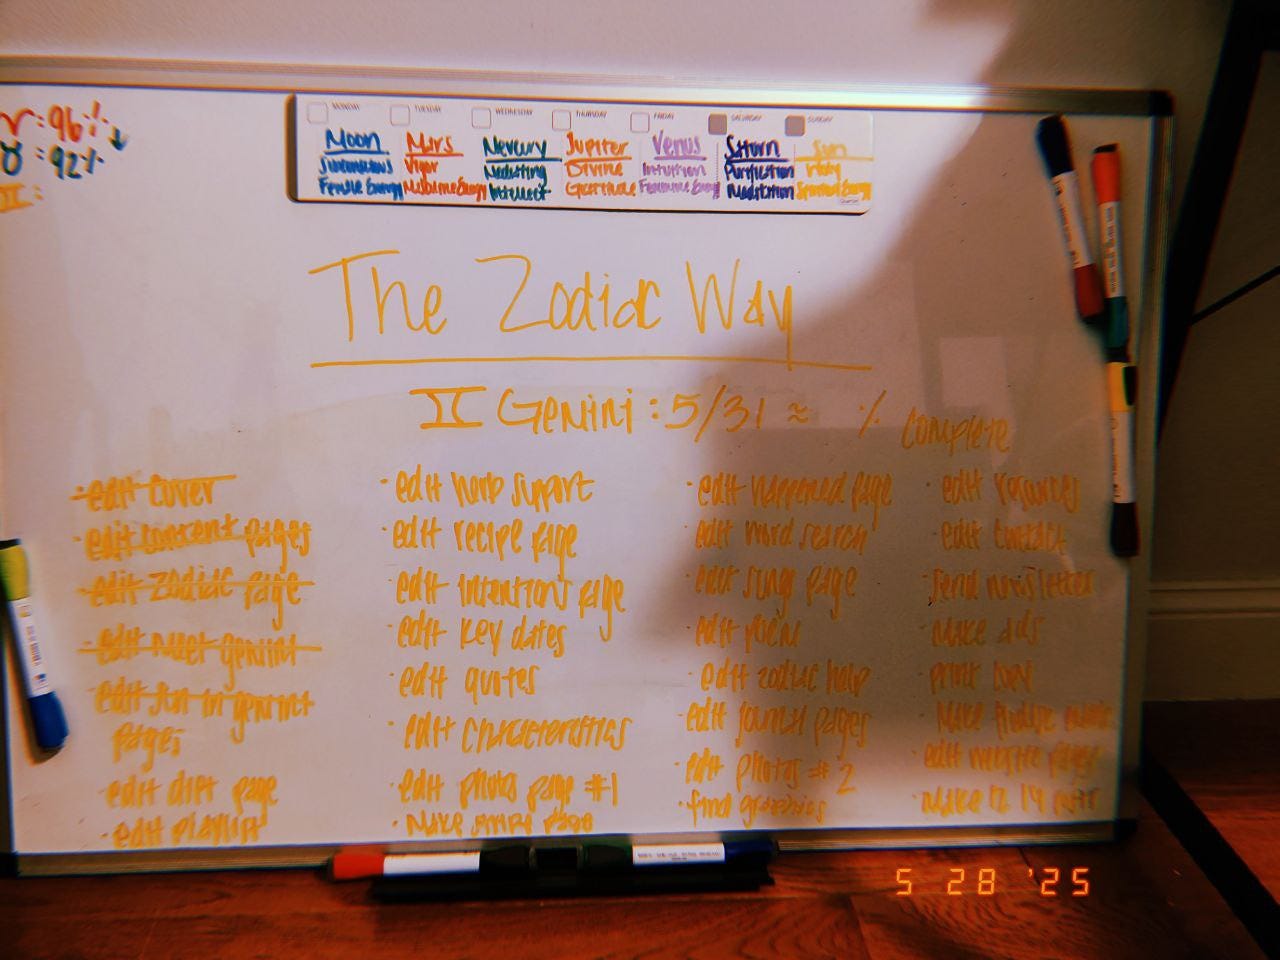 ♈: 96%
♉: 92%
♊:
MONDAY
TUESDAY
WEDNESDAY
THURSDAY
FRIDAY
SATURDAY
SUNDAY
Moon
Subconscious
Female Energy
Mars
Vigor
Masculine Energy
Mercury
Intellect
Jupiter
Divine
Gratitude
Venus
Intuition
Feminine Energy
Saturn
Purification
Meditation
Sun
Spiritual Energy
The Zodiac Way
♊ Gemini: 5/31 ≈ % Complete
· edit cover
· edit content pages
· edit zodiac page
· edit meet gemini
· edit sun in gemini
pages
· edit diet page
· edit playlist
· edit herb support
· edit recipe page
· edit intentions page
· edit key dates
· edit quotes
· edit characteristics
· edit photos page #1
· Make page
· edit happened page
· edit word search
· edit song page
· edit poem
· edit zodiac help
· edit journal pages
· edit photos #2
· find graphics
· edit resources
· edit contact
· send newsletter
· Make ads
· print copy
· Make
· edit website pages
· Make
5 28 '25